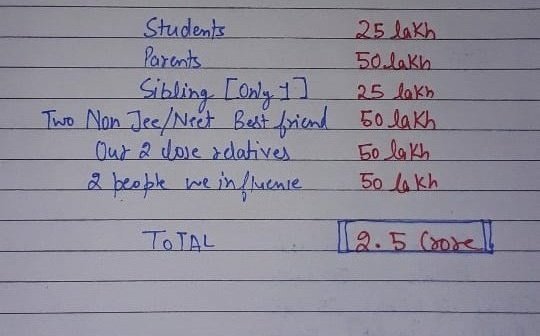 Students 25 lakh
Parents 50 lakh
Sibling [Only 1] 25 lakh
Two Non Jee/Neet Best friend 50 lakh
Our 2 close relatives 50 lakh
2 people we influence 50 lakh
TOTAL 2.5 Crore